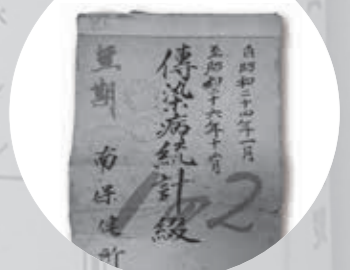 自昭和二十四年一月
至昭和二十六年十二月
傳染病統計綴
南保健所